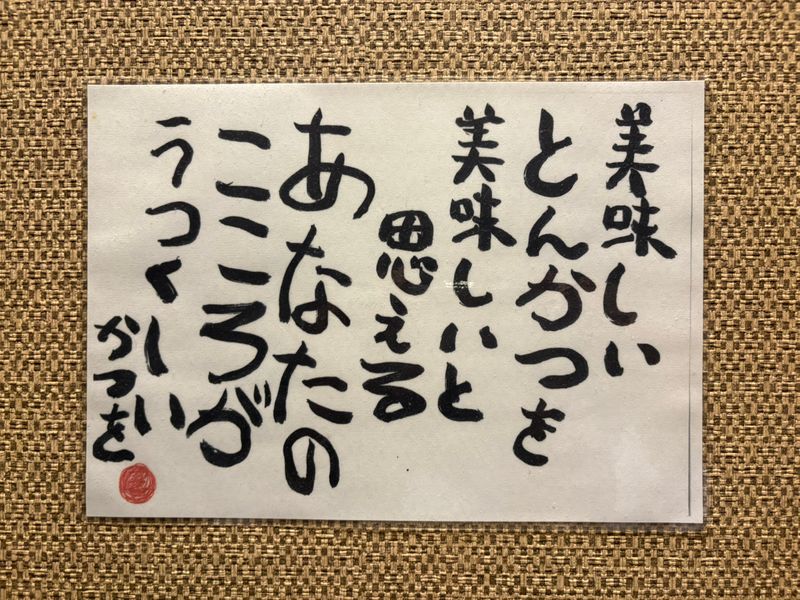 美味しい
とんかつを
美味しいと
思える
あなたの
こころが
うつくしい
かつを